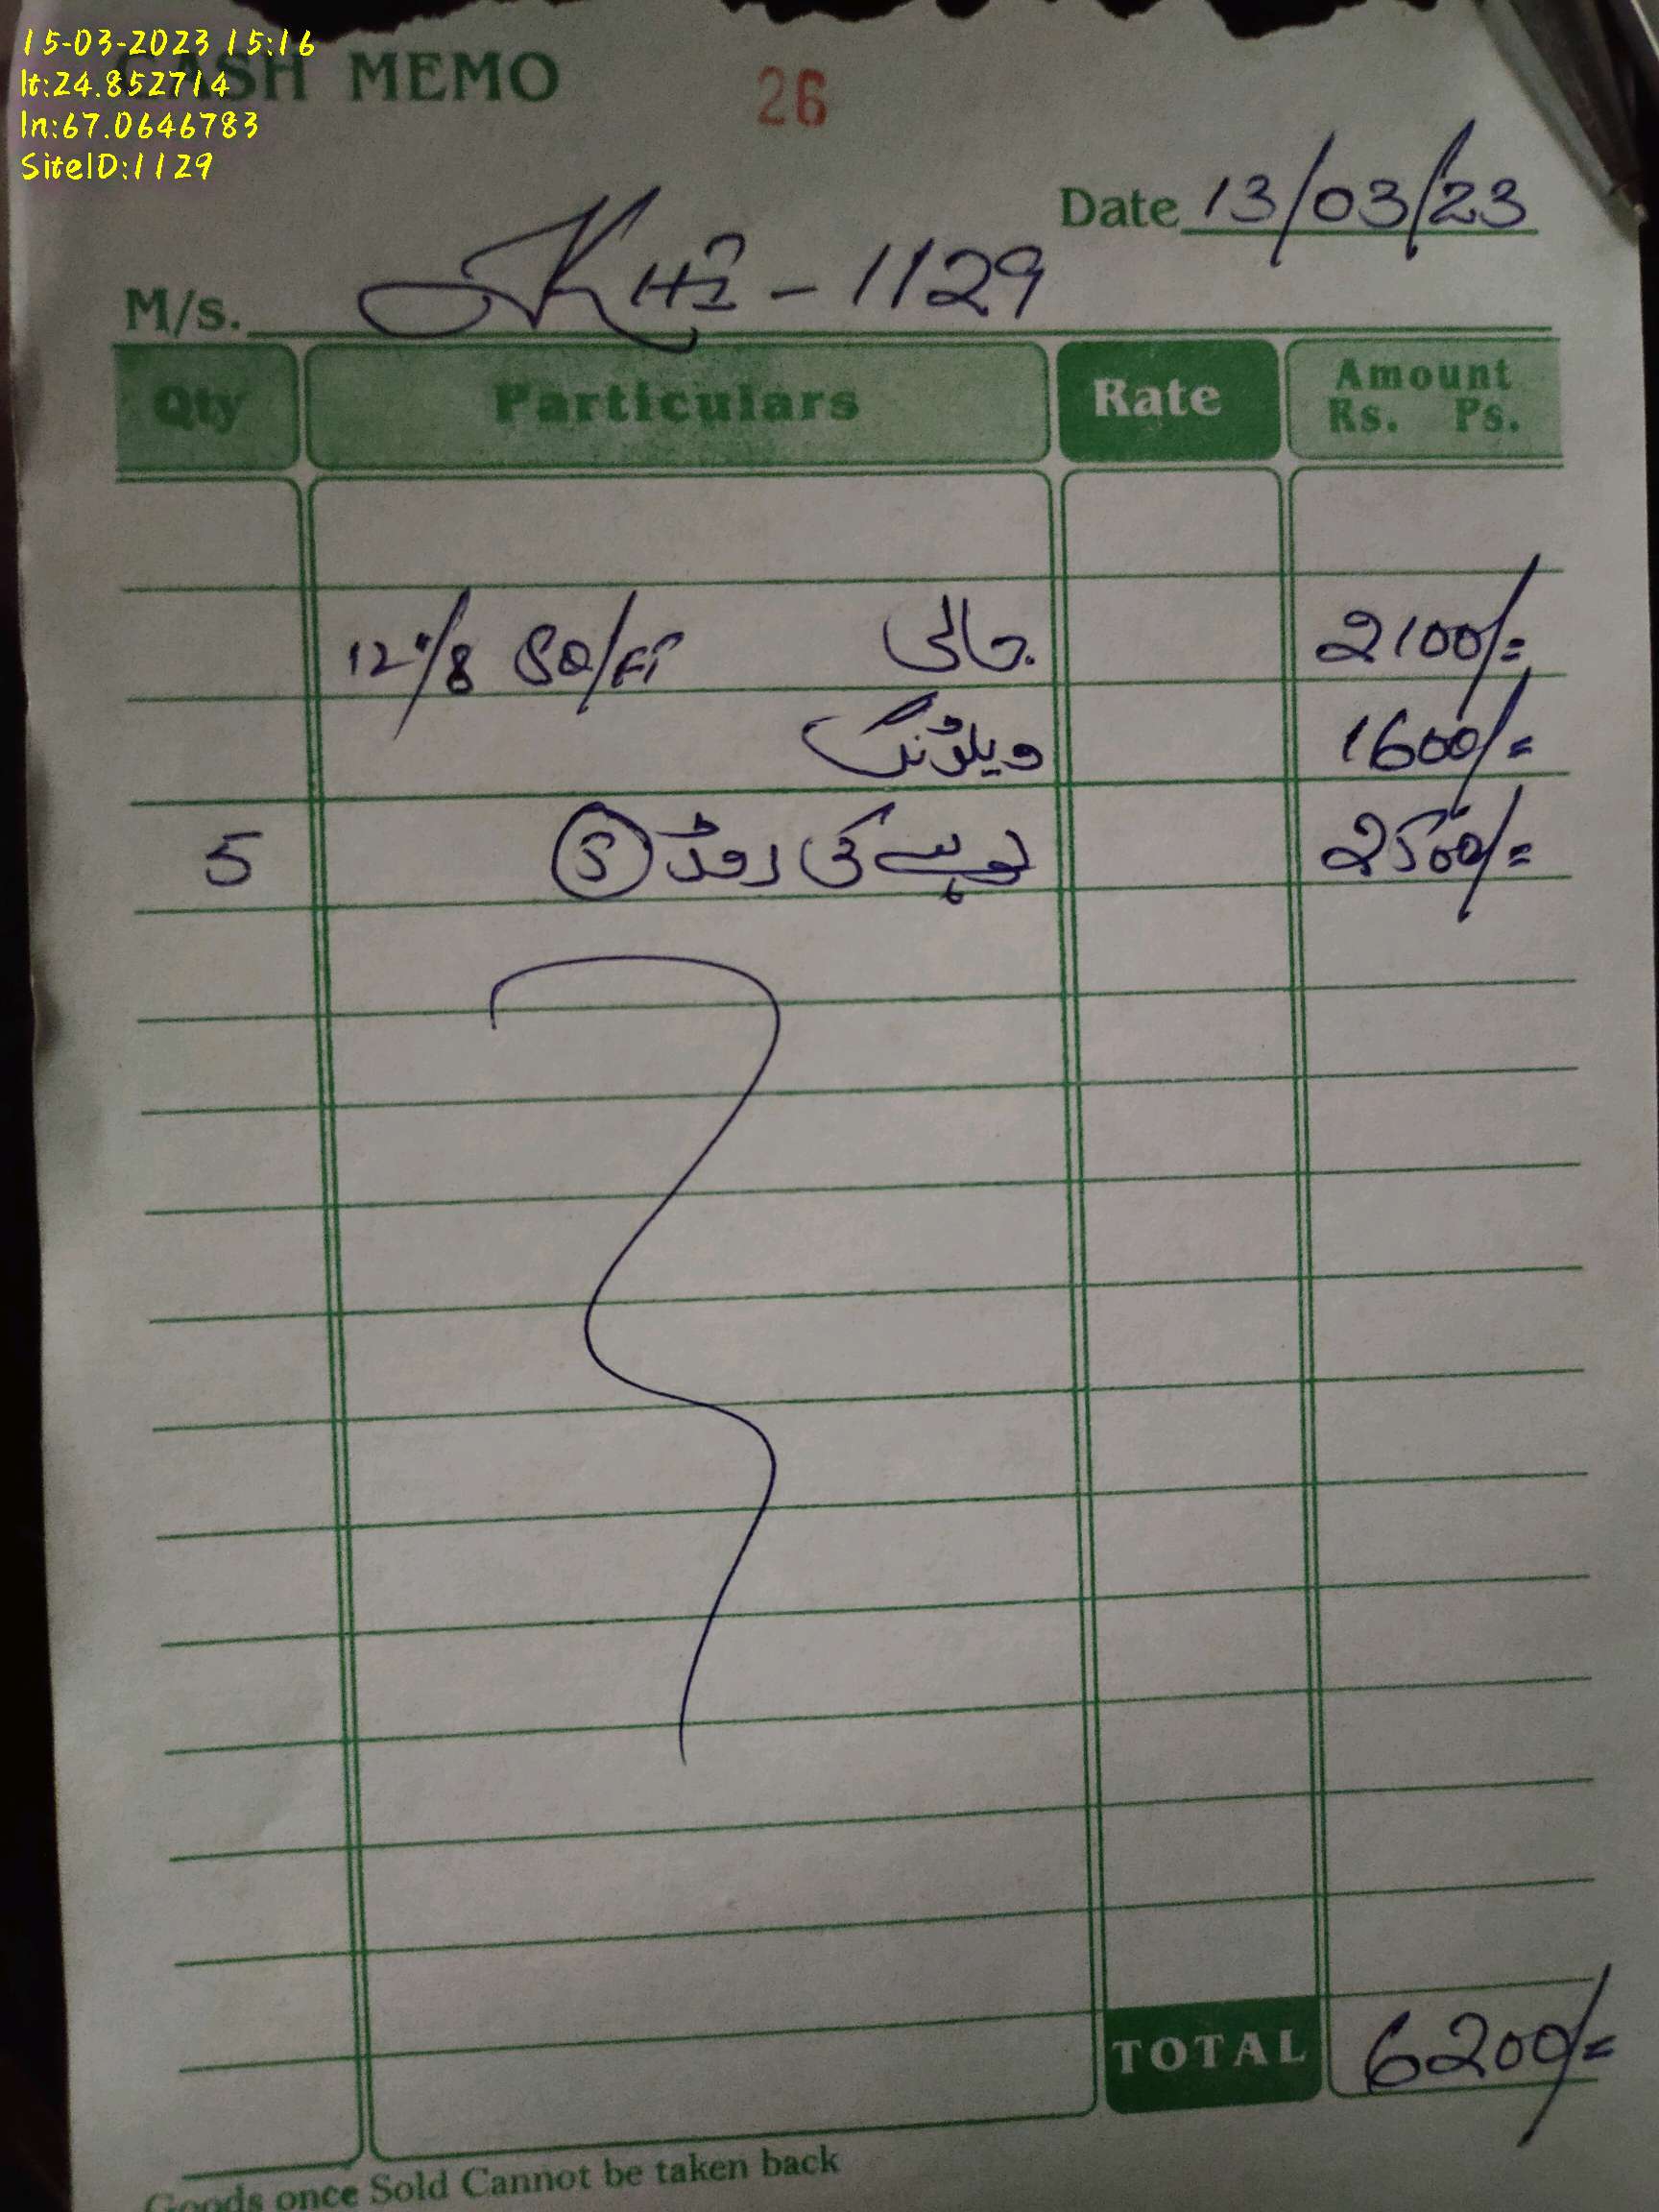 15-03-2023 15:16
lt:24.852714
ln:67.0646783
SiteID:1129
CASH MEMO
26
Date 13/03/23
M/s. KHI - 1129
Qty Particulars Rate Amount Rs. Ps.
12"/8 SQ/FT جالی 2100/=
ویلڈنگ 1600/=
5 لوہے کی روڈ 5 2500/=
TOTAL 6200/=
Goods once Sold Cannot be taken back